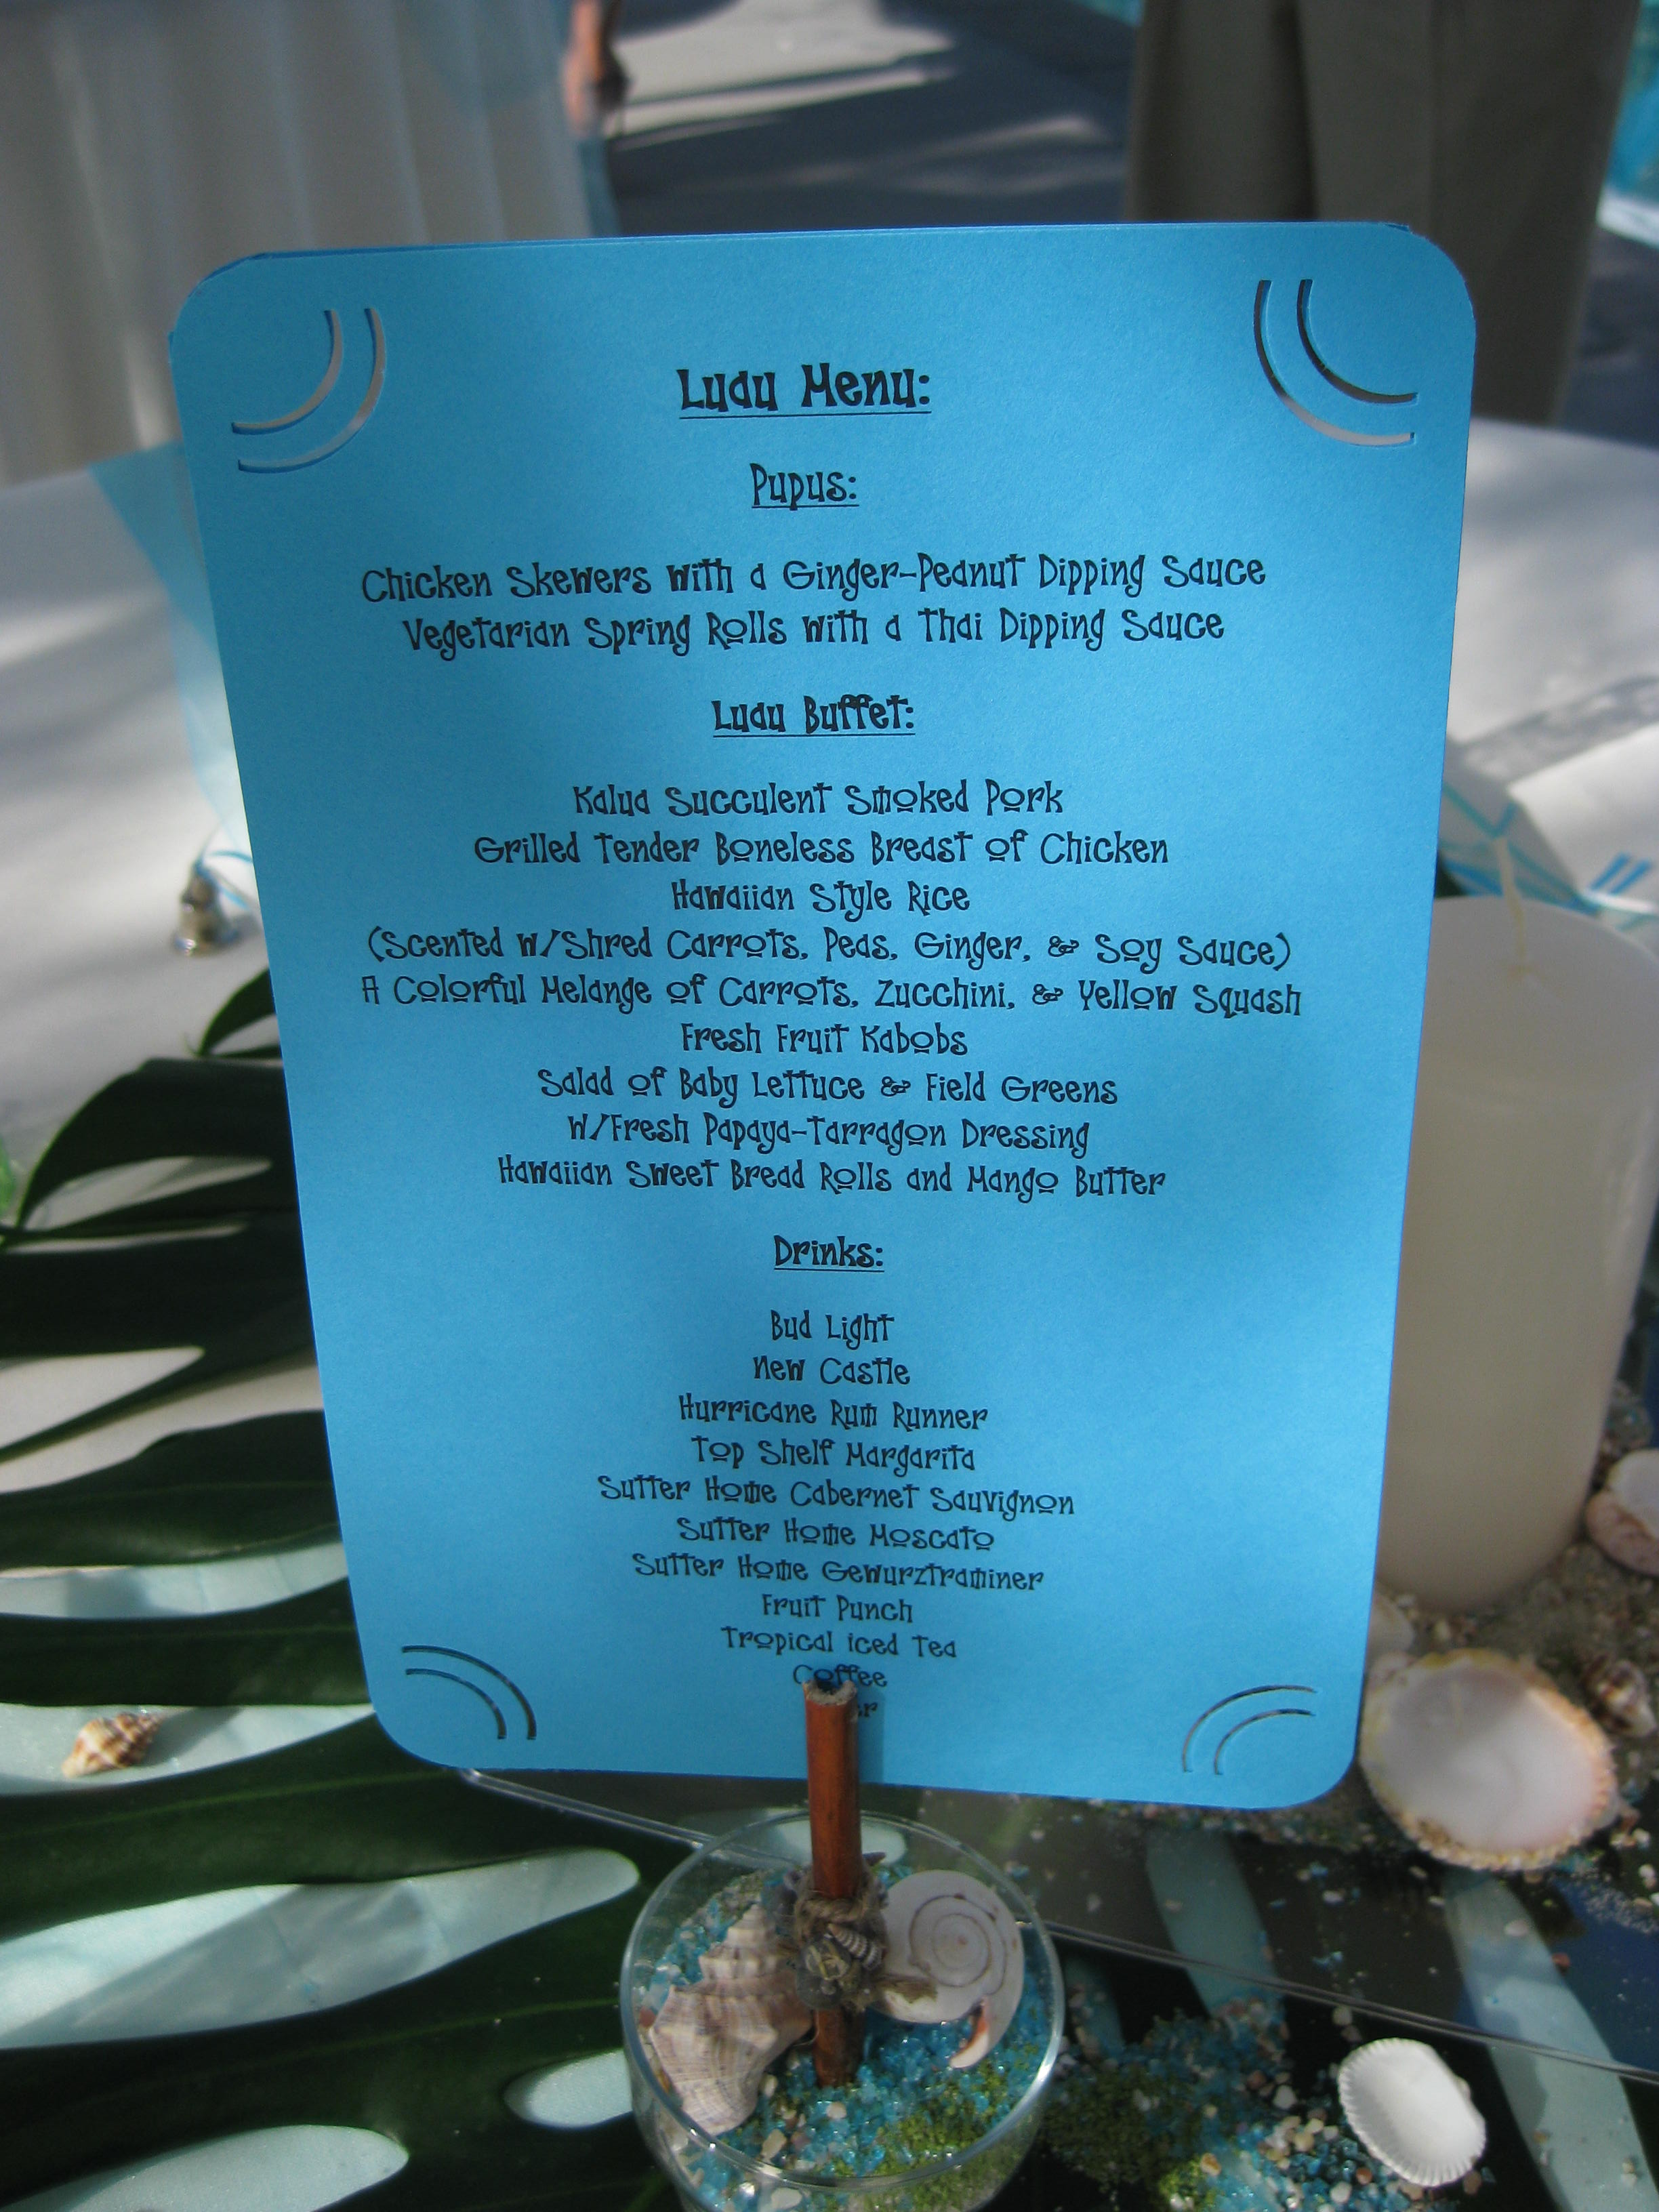 Luau Menu:
Pupus:
Chicken Skewers with a Ginger-Peanut Dipping Sauce
Vegetarian Spring Rolls with a Thai Dipping Sauce
Luau Buffet:
Kalua Succulent Smoked Pork
Grilled Tender Boneless Breast of Chicken
Hawaiian Style Rice
(Scented w/Shred Carrots, Peas, Ginger, & Soy Sauce)
A Colorful Melange of Carrots, Zucchini, & Yellow Squash
Fresh Fruit Kabobs
Salad of Baby Lettuce & Field Greens
w/Fresh Papaya-Tarragon Dressing
Hawaiian Sweet Bread Rolls and Mango Butter
Drinks:
Bud Light
New Castle
Hurricane Rum Runner
Top Shelf Margarita
Sutter Home Cabernet Sauvignon
Sutter Home Moscato
Sutter Home Gewurztraminer
Fruit Punch
Tropical iced Tea
Coffee